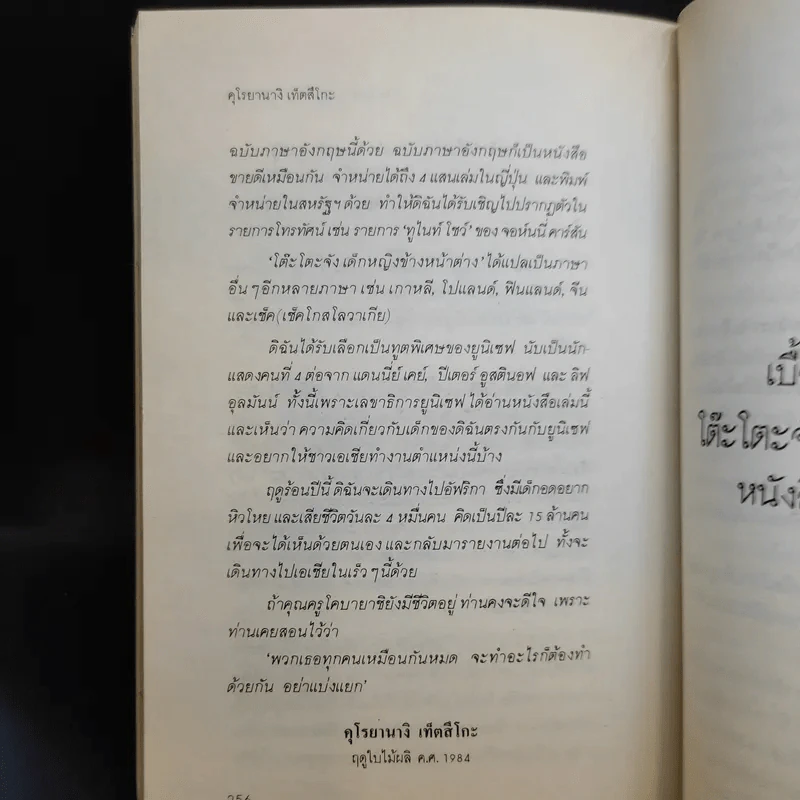 คุโรยานางิ เท็ตสึโกะ
ฉบับภาษาอังกฤษนี้ด้วย ฉบับภาษาอังกฤษก็เป็นหนังสือ
ขายดีเหมือนกัน จำหน่ายได้ถึง 4 แสนเล่มในญี่ปุ่น และพิมพ์
จำหน่ายในสหรัฐฯ ด้วย ทำให้ดิฉันได้รับเชิญไปปรากฏตัวใน
รายการโทรทัศน์ เช่น รายการ 'ทูไนท์ โชว์' ของ จอห์นนี่ คาร์สัน
'โต๊ะโตะจัง เด็กหญิงข้างหน้าต่าง' ได้แปลเป็นภาษา
อื่น ๆ อีกหลายภาษา เช่น เกาหลี, โปแลนด์, ฟินแลนด์, จีน
และเช็ค (เช็คโกสโลวาเกีย)
ดิฉันได้รับเลือกเป็นทูตพิเศษของยูนิเซฟ นับเป็นนัก-
แสดงคนที่ 4 ต่อจาก แดนนี่ย์ เคย์, ปีเตอร์ อูสตินอฟ และ ลิฟ
อุลมันน์ ทั้งนี้เพราะเลขาธิการยูนิเซฟ ได้อ่านหนังสือเล่มนี้
และเห็นว่า ความคิดเกี่ยวกับเด็กของดิฉันตรงกันกับยูนิเซฟ
และอยากให้ชาวเอเชียทำงานตำแหน่งนี้บ้าง
ฤดูร้อนปีนี้ ดิฉันจะเดินทางไปอัฟริกา ซึ่งมีเด็กอดอยาก
หิวโหย และเสียชีวิตวันละ 4 หมื่นคน คิดเป็นปีละ 15 ล้านคน
เพื่อจะได้เห็นด้วยตนเอง และกลับมารายงานต่อไป ทั้งจะ
เดินทางไปเอเชียในเร็ว ๆ นี้ด้วย
ถ้าคุณครูโคบายาชิยังมีชีวิตอยู่ ท่านคงจะดีใจ เพราะ
ท่านเคยสอนไว้ว่า
'พวกเธอทุกคนเหมือนกันหมด จะทำอะไรก็ต้องทำ
ด้วยกัน อย่าแบ่งแยก'
คุโรยานางิ เท็ตสึโกะ
ฤดูใบไม้ผลิ ค.ศ. 1984
โต๊ะโตะจ